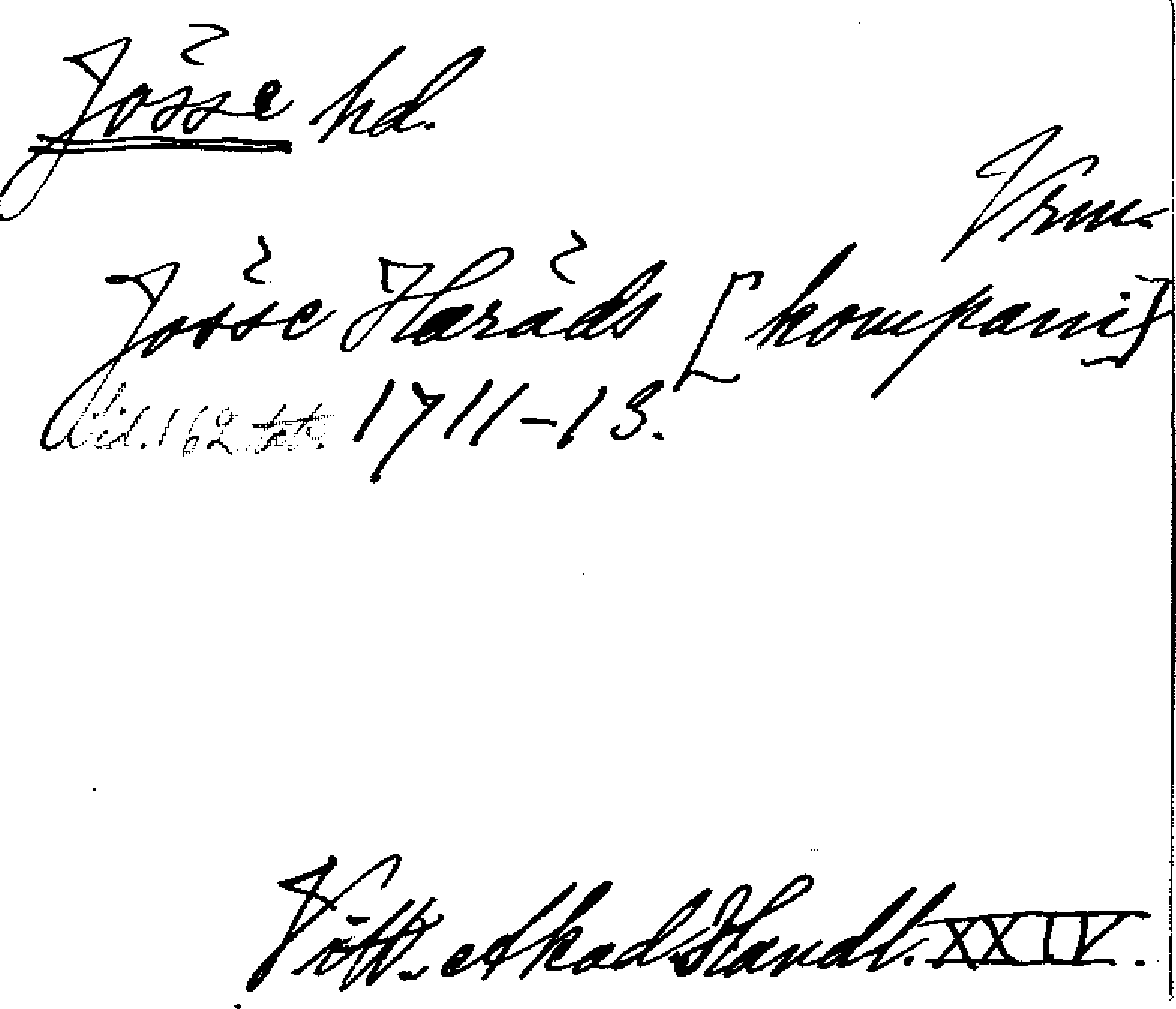 Jösse hd.
Vrm.
Jösse Häräds [kompani]
Sid. 162 tab. 1711–13.
Vitt. Akad. Handl. XXIV.